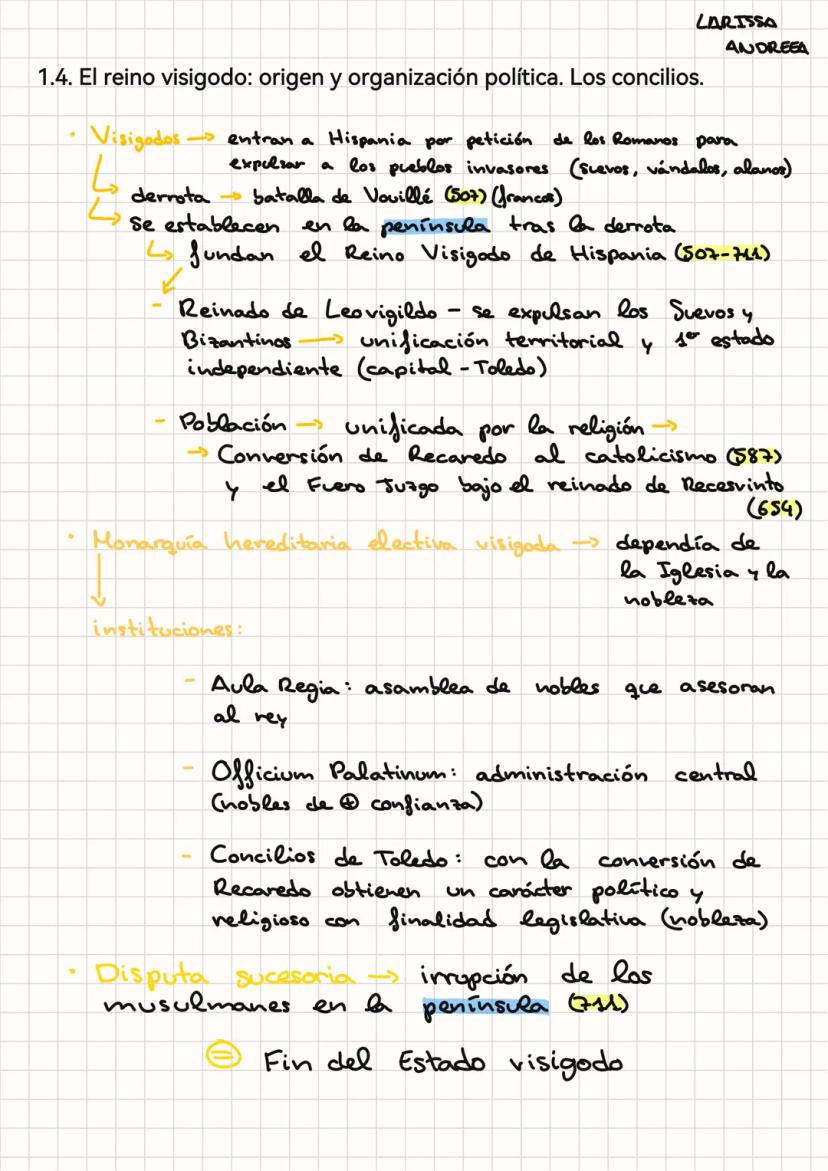 LARISSA
ANDREEA
1.4. El reino visigodo: origen y organización política. Los concilios.
· Visigodos → entran a Hispania por petición de los Romanos para
expulsar a los pueblos invasores (suevos, vándalos, alanos)
derrota → batalla de Vouillé (507) (francos)
se establecen en la península tras la derrota
fundan el Reino Visigodo de Hispania (507-711)
- Reinado de Leovigildo - se expulsan los Suevos y
Bizantinos → unificación territorial y 1er estado
independiente (capital - Toledo)
- Población → unificada por la religión →
→ Conversión de Recaredo al catolicismo (587)
y el Fuero Juzgo bajo el reinado de Recesvinto
(654)
· Monarquía hereditaria electiva visigoda → dependía de
la Iglesia y la
nobleza
instituciones:
- Aula Regia: asamblea de nobles que asesoran
al rey
- Officium Palatinum: administración central
(nobles de ⊕ confianza)
- Concilios de Toledo: con la conversión de
Recaredo obtienen un carácter político y
religioso con finalidad legislativa (nobleza)
· Disputa sucesoria → irrupción de los
musulmanes en la península (711)
= Fin del Estado visigodo